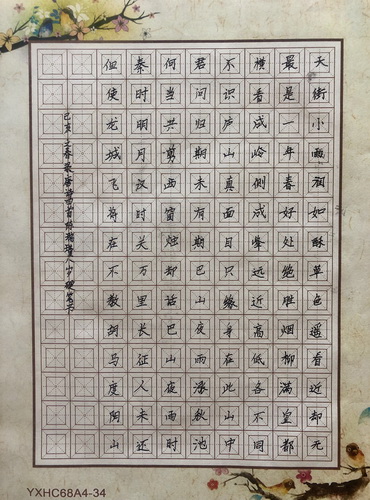 天街小雨润如酥草色遥看近却无
最是一年春好处绝胜烟柳满皇都
横看成岭侧成峰远近高低各不同
不识庐山真面目只缘身在此山中
君问归期未有期巴山夜雨涨秋池
何当共剪西窗烛却话巴山夜雨时
秦时明月汉时关万里长征人未还
但使龙城飞将在不教胡马度阴山
己亥 春录唐诗四首
YXHC68A4-34